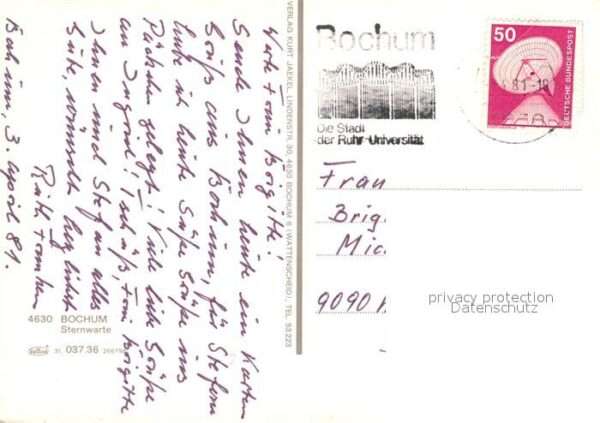 Bochum, 3. April 81.
Wert. Frau Brigitte!
Sende Ihnen heute ein Karten
Grüß aus Bochum, für Stefan
habe ich heute Süße ins
Päckchen gelegt! Viele liebe Grüße
an Ingrid! Tschüß Frau Brigitte
Ihnen und Stefan alles
Gute, wünscht herzlichst
4630 BOCHUM
Sternwarte
31 037.36
VERLAG KURT JAEKEL, LINDENSTR. 30, 4630 BOCHUM 6 (WATTENSCHEID), TEL. 53 223
Bochum
Die Stadt
der Ruhr-Universität
81-18
50
DEUTSCHE BUNDESPOST
Frau
Brig
Mic
9090
privacy protection
Datenschutz